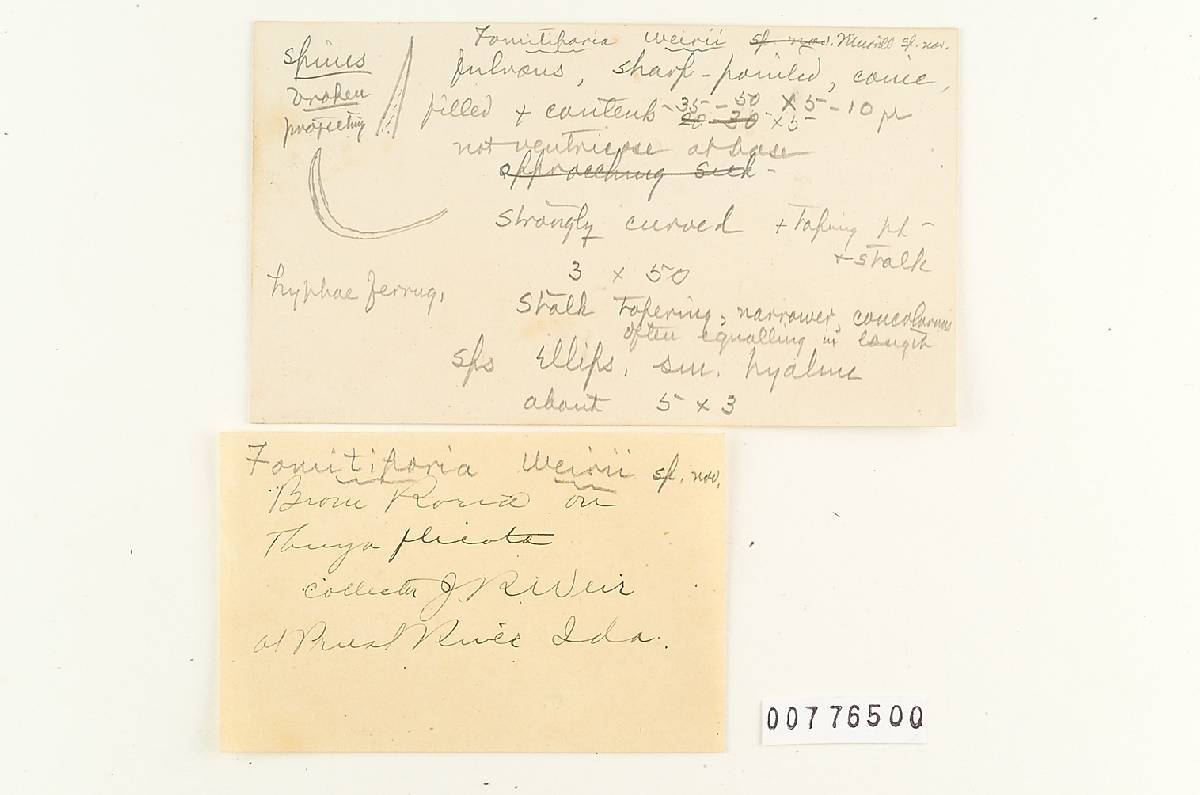 Fomitiporia Weirii sp. nov. Murrill sp. nov.
spines
broken
projecting
fulvous, sharp-pointed, conic,
filled + contents 35-50 x 5-10 µ
20-30 x 5
not ventricose at base
approaching such -
strongly curved + tapering pt -
+ stalk
3 x 50
hyphae ferrug.
stalk tapering, narrower, concolorous
often equalling in length
sps ellips. sm. hyaline
about 5 x 3
Fomitiporia Weirii sp. nov.
Brown on
Thuya plicata
collector J R Weir
at River Ida.
00776500